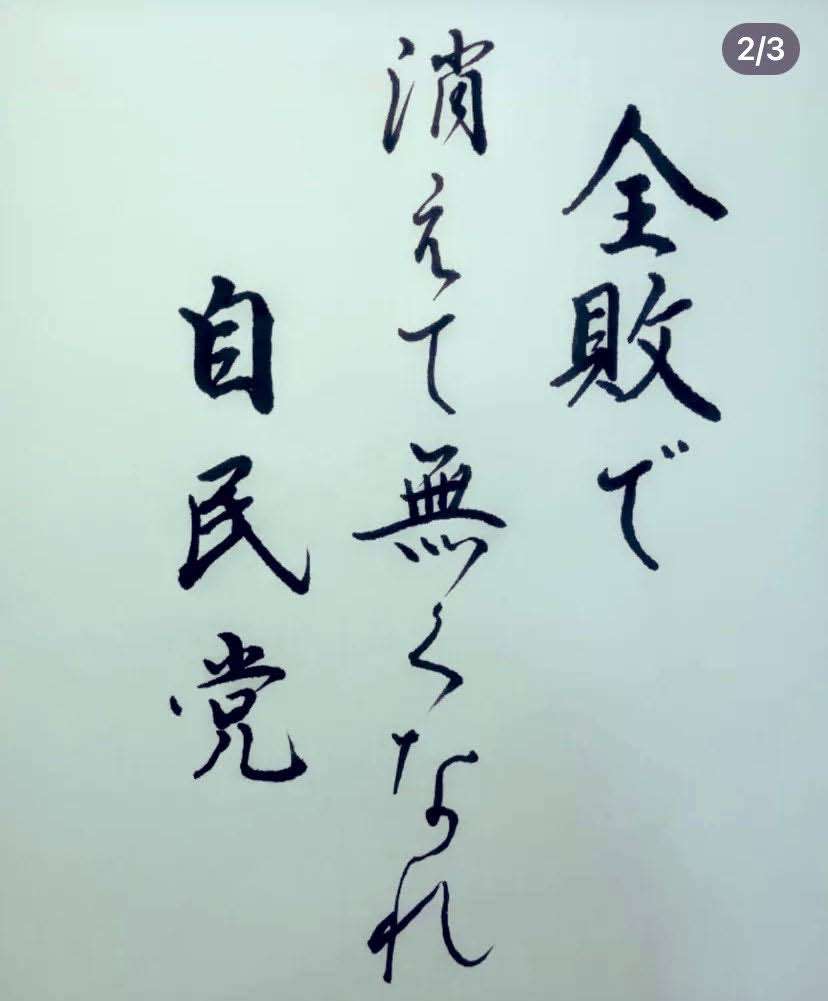 2/3
全敗で
消えて無くなれ
自民党